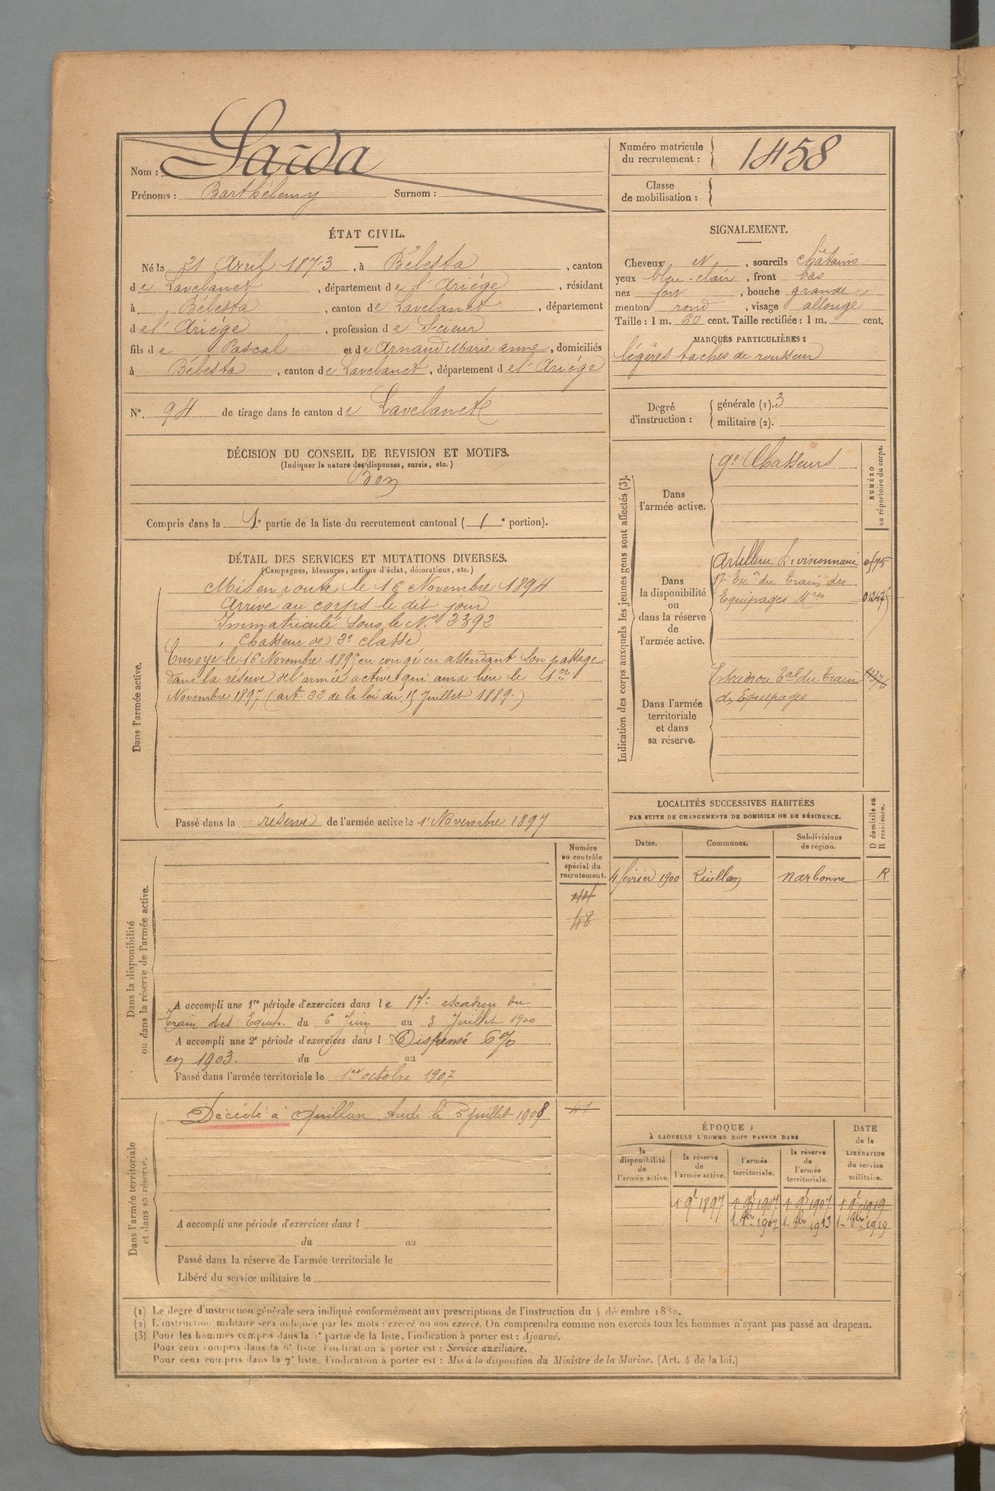 Nom : Sarda
Prénoms : Barthélemy Surnom :
Numéro matricule du recrutement : 1458
Classe de mobilisation :
ÉTAT CIVIL.
Né le 21 Avril 1873, à Bélesta, canton
de Lavelanet, département de l'Ariége, résidant
à Bélesta, canton de Lavelanet, département
de l'Ariége, profession de Scieur
fils de Pascal et de Arnaud Marie anne, domiciliés
à Bélesta, canton de Lavelanet, département de l'Ariége
N°. 94 de tirage dans le canton de Lavelanet
SIGNALEMENT.
Cheveux et, sourcils chatains
yeux bleu-clair, front bas
nez fort, bouche grande,
menton rond, visage allongé
Taille : 1 m. 60 cent. Taille rectifiée : 1 m. cent.
MARQUES PARTICULIÈRES :
légères taches de rousseur
Degré d'instruction : générale (1). 3
militaire (2).
DÉCISION DU CONSEIL DE REVISION ET MOTIFS.
(Indiquer la nature des dispenses, sursis, etc.)
Bon
Compris dans la 1e partie de la liste du recrutement cantonal ( 1e portion).
DÉTAIL DES SERVICES ET MUTATIONS DIVERSES.
(Campagnes, blessures, actions d'éclat, décorations, etc.)
Dans l'armée active.
Mis en route le 16 Novembre 1894
Arrivé au corps le dit jour
Immatriculé sous le N° 3392
Chasseur de 2e classe
Envoyé le 16 Novembre 1895 en congé en attendant son passage
dans la réserve de l'armée active qui aura lieu le 1er
Novembre 1897 (art. de la loi du 15 Juillet 1889.)
Passé dans la réserve de l'armée active le 1er Novembre 1897
Indication des corps auxquels les jeunes gens sont affectés (3).
NUMÉRO au répertoire du corps.
Dans l'armée active.
9e Chasseurs
Dans la disponibilité ou dans la réserve de l'armée active.
Artillerie Divisionnaire
17e Esc. du Train des
Equipages Mres
Dans l'armée territoriale et dans sa réserve.
Escadron tal du Train
des Equipages
LOCALITÉS SUCCESSIVES HABITÉES
PAR SUITE DE CHANGEMENTS DE DOMICILE OU DE RÉSIDENCE.
Dates. Communes. Subdivisions de région. D domicile ou R résidence.
4 février 1900 Quillan Narbonne R
Dans la disponibilité ou dans la réserve de l'armée active.
Numéro au contrôle spécial du recrutement.
44
48
A accompli une 1re période d'exercices dans le 17e escadron du
train des Equip. du 6 Juin au 3 Juillet 1900
A accompli une 2e période d'exercices dans l Dispensé 6%
en 1903. du au
Passé dans l'armée territoriale le 1er octobre 1907
Dans l'armée territoriale et dans sa réserve.
Décédé à Quillan Aude le 5 juillet 1908
A accompli une période d'exercices dans l
du au
Passé dans la réserve de l'armée territoriale le
Libéré du service militaire le
ÉPOQUE
À LAQUELLE L'HOMME DOIT PASSER DANS
la disponibilité de l'armée active. la réserve de l'armée active. l'armée territoriale. la réserve de l'armée territoriale. DATE de la LIBÉRATION du service militaire.
1 9e 1897 1 9e 1907 1 9e 1907 1 9e 1919
1 8bre 1907 1 8bre 1913 1 8bre 1919
(1) Le degré d'instruction générale sera indiqué conformément aux prescriptions de l'instruction du 4 décembre 1889.
(2) L'instruction militaire sera indiquée par les mots : exercé ou non exercé. On comprendra comme non exercés tous les hommes n'ayant pas passé au drapeau.
(3) Pour les hommes compris dans la 5e partie de la liste, l'indication à porter est : Ajourné.
Pour ceux compris dans la 6e liste, l'indication à porter est : Service auxiliaire.
Pour ceux compris dans la 7e liste, l'indication à porter est : Mis à la disposition du Ministre de la Marine. (Art. 4 de la loi.)